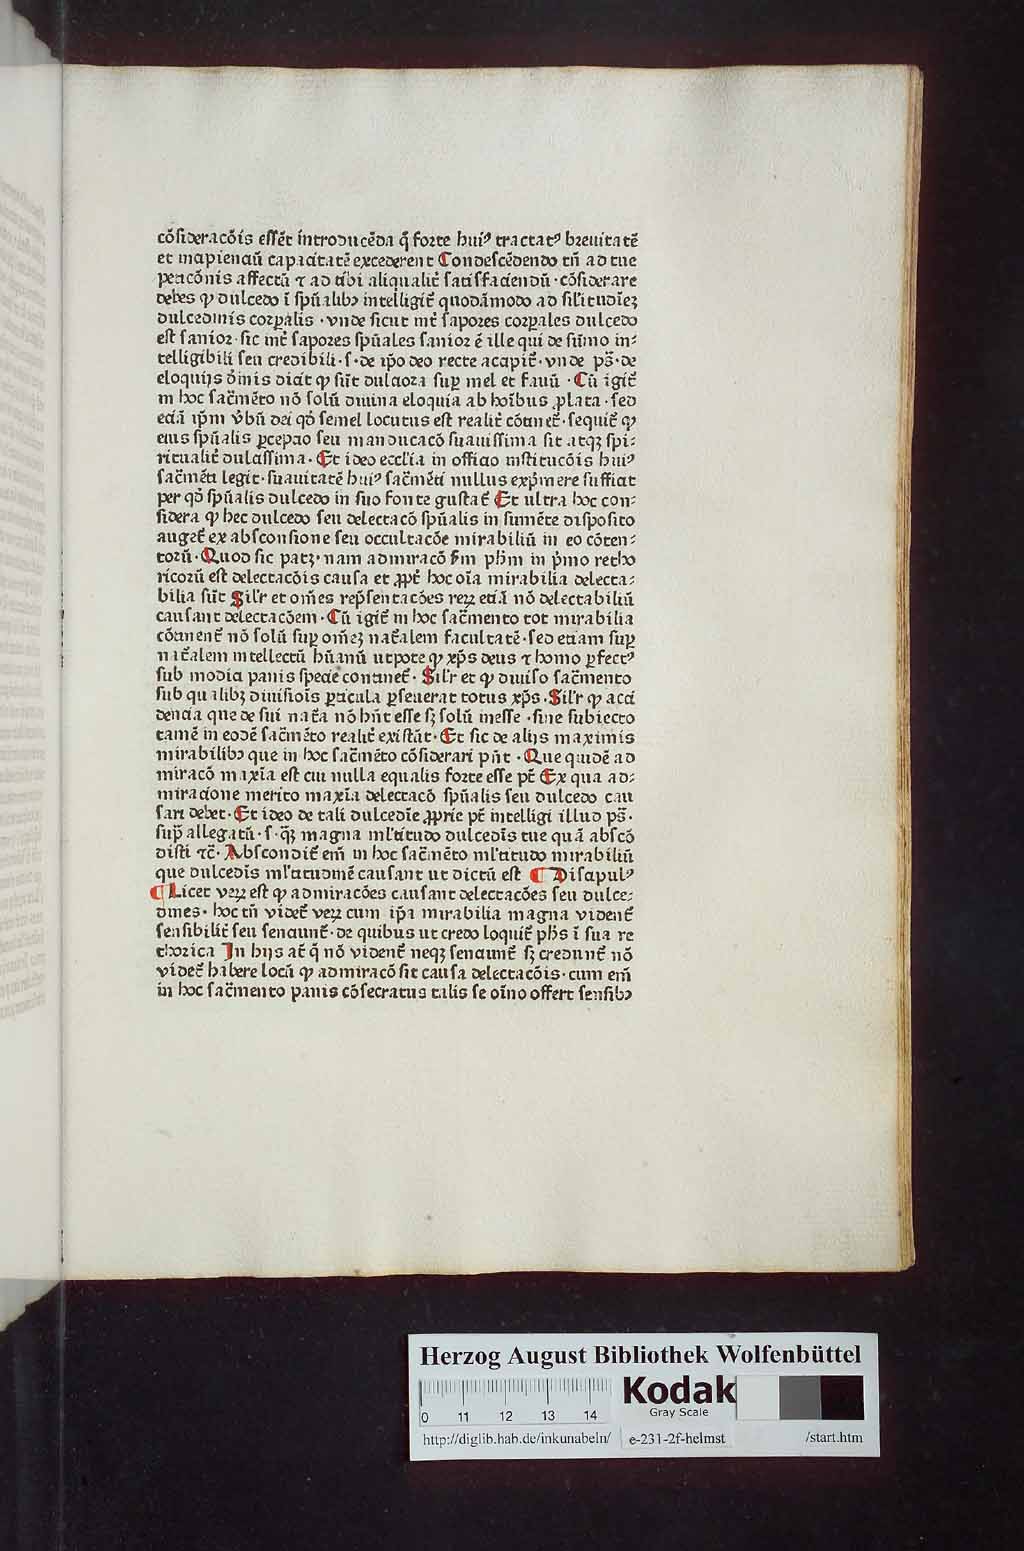 cõsideracõis essēt introducēda q̃ forte huiꝰ tractatꝰ breuitatē
et incipienciū capacitatē excederent Condescēdendo tñ ad tue
peticõnis affectū ⁊ ad tibi aliqualit̃ satisfaciendū · cõsiderare
debes ꝙ dulcedo ī spũalibꝫ intelligit̃ quodāmodo ad silitudīeꝫ
dulcedinis corꝑalis · vnde sicut int̃ sapores corꝑales dulcedo
est sanior · sic int̃ sapores spũales sanior ē ille qui de sūmo in⸗
telligibili seu credibili · s · de ip̄o deo recte accipit̃ · vnde ps̃ · de
eloquijs diuinis dicit ꝙ sūt dulciora suꝑ mel et fauū · Cū igit̃
in hoc sac̃mēto nõ solū diuina eloquia ab hoībus ꝓlata · sed
eciā ip̄m v̓bū dei qd̓ semel locutus est realit̃ cõtinet̃ · sequit̃ ꝙ
eius spũalis ꝑcepcio seu manducacõ suauissima sit atqꝫ spi⸗
ritualit̃ dulcissima · Et ideo eccl̓ia in officio institucõis huiꝰ
sac̃mēti legit · suauitatē huiꝰ sac̃mēti nullus exp̄mere sufficit
per qd̓ spũalis dulcedo in suo fonte gustat̃ Et ultra hoc con⸗
sidera ꝙ hec dulcedo seu delectacõ spũalis in sumēte disposito
auget̃ ex absconsione seu occultacõe mirabiliū in eo cõten⸗
torū · Quod sic patꝫ · nam admiracõ s̓m ph̄m in p̄mo retho
ricorū est delectacõis causa et ꝓpt̃ hoc oīa mirabilia delecta⸗
bilia sūt Sil̓r et om̄es rep̄sentacões reꝝ etiā nõ delectabiliū
causant delectacõem · Cū igit̃ in hoc sac̃mento tot mirabilia
cõtinent̃ nõ solū suꝑ om̄eꝫ nat̃alem facultatē · sed etiam suꝑ
nat̃alem intellectū hũanū utpote ꝙ xp̄s deus ⁊ homo ꝑfectꝰ
sub modica panis specie continet̃ · Sil̓r et ꝙ diuiso sac̃mento
sub qualibꝫ diuisiois ꝑticula ꝑseuerat totus xp̄s · Sil̓r ꝙ acci
dencia que de sui nat̃a nõ hñt esse sꝫ solū inesse · sine subiecto
tamē in eodē sac̃mēto realit̃ existāt · Et sic de alijs maximis
mirabilibꝫ que in hoc sac̃mēto cõsiderari pñt · Que quidē ad
miracõ maxīa est cui nulla equalis forte esse pt̃ Ex qua ad⸗
miracione merito maxīa delectacõ spũalis seu dulcedo cau
sari debet · Et ideo de tali dulcedīe ꝓprie pt̃ intelligi illud ps̃ ·
sup̃ allegatū · s · q̃ꝫ magna ml̓titudo dulcedīs tue quā abscõ
disti ⁊c̃ · Abscondit̃ em̄ in hoc sac̃mēto ml̓titudo mirabiliū
que dulcedīs ml̓titudinē causant ut dictū est ¶ Discipulꝰ
¶ Licet veꝝ est ꝙ admiracões causant delectacões seu dulce⸗
dines · hoc tñ videt̃ veꝝ cum ip̄a mirabilia magna vident̃
sensibilit̃ seu senciunt̃ · de quibus ut credo loquit̃ ph̄s ī sua re
thorica In hijs at̃ q̃ nõ vident̃ neqꝫ senciunt̃ sꝫ credunt̃ nõ
videt̃ habere locū ꝙ admiracõ sit causa delectacõis · cum em̄
in hoc sac̃mento panis cõsecratus talis se oīno offert sensibꝫ
Herzog August Bibliothek Wolfenbüttel
0 11 12 13 14
Kodak
Gray Scale
http://diglib.hab.de/inkunabeln/ e-231-2f-helmst /start.htm